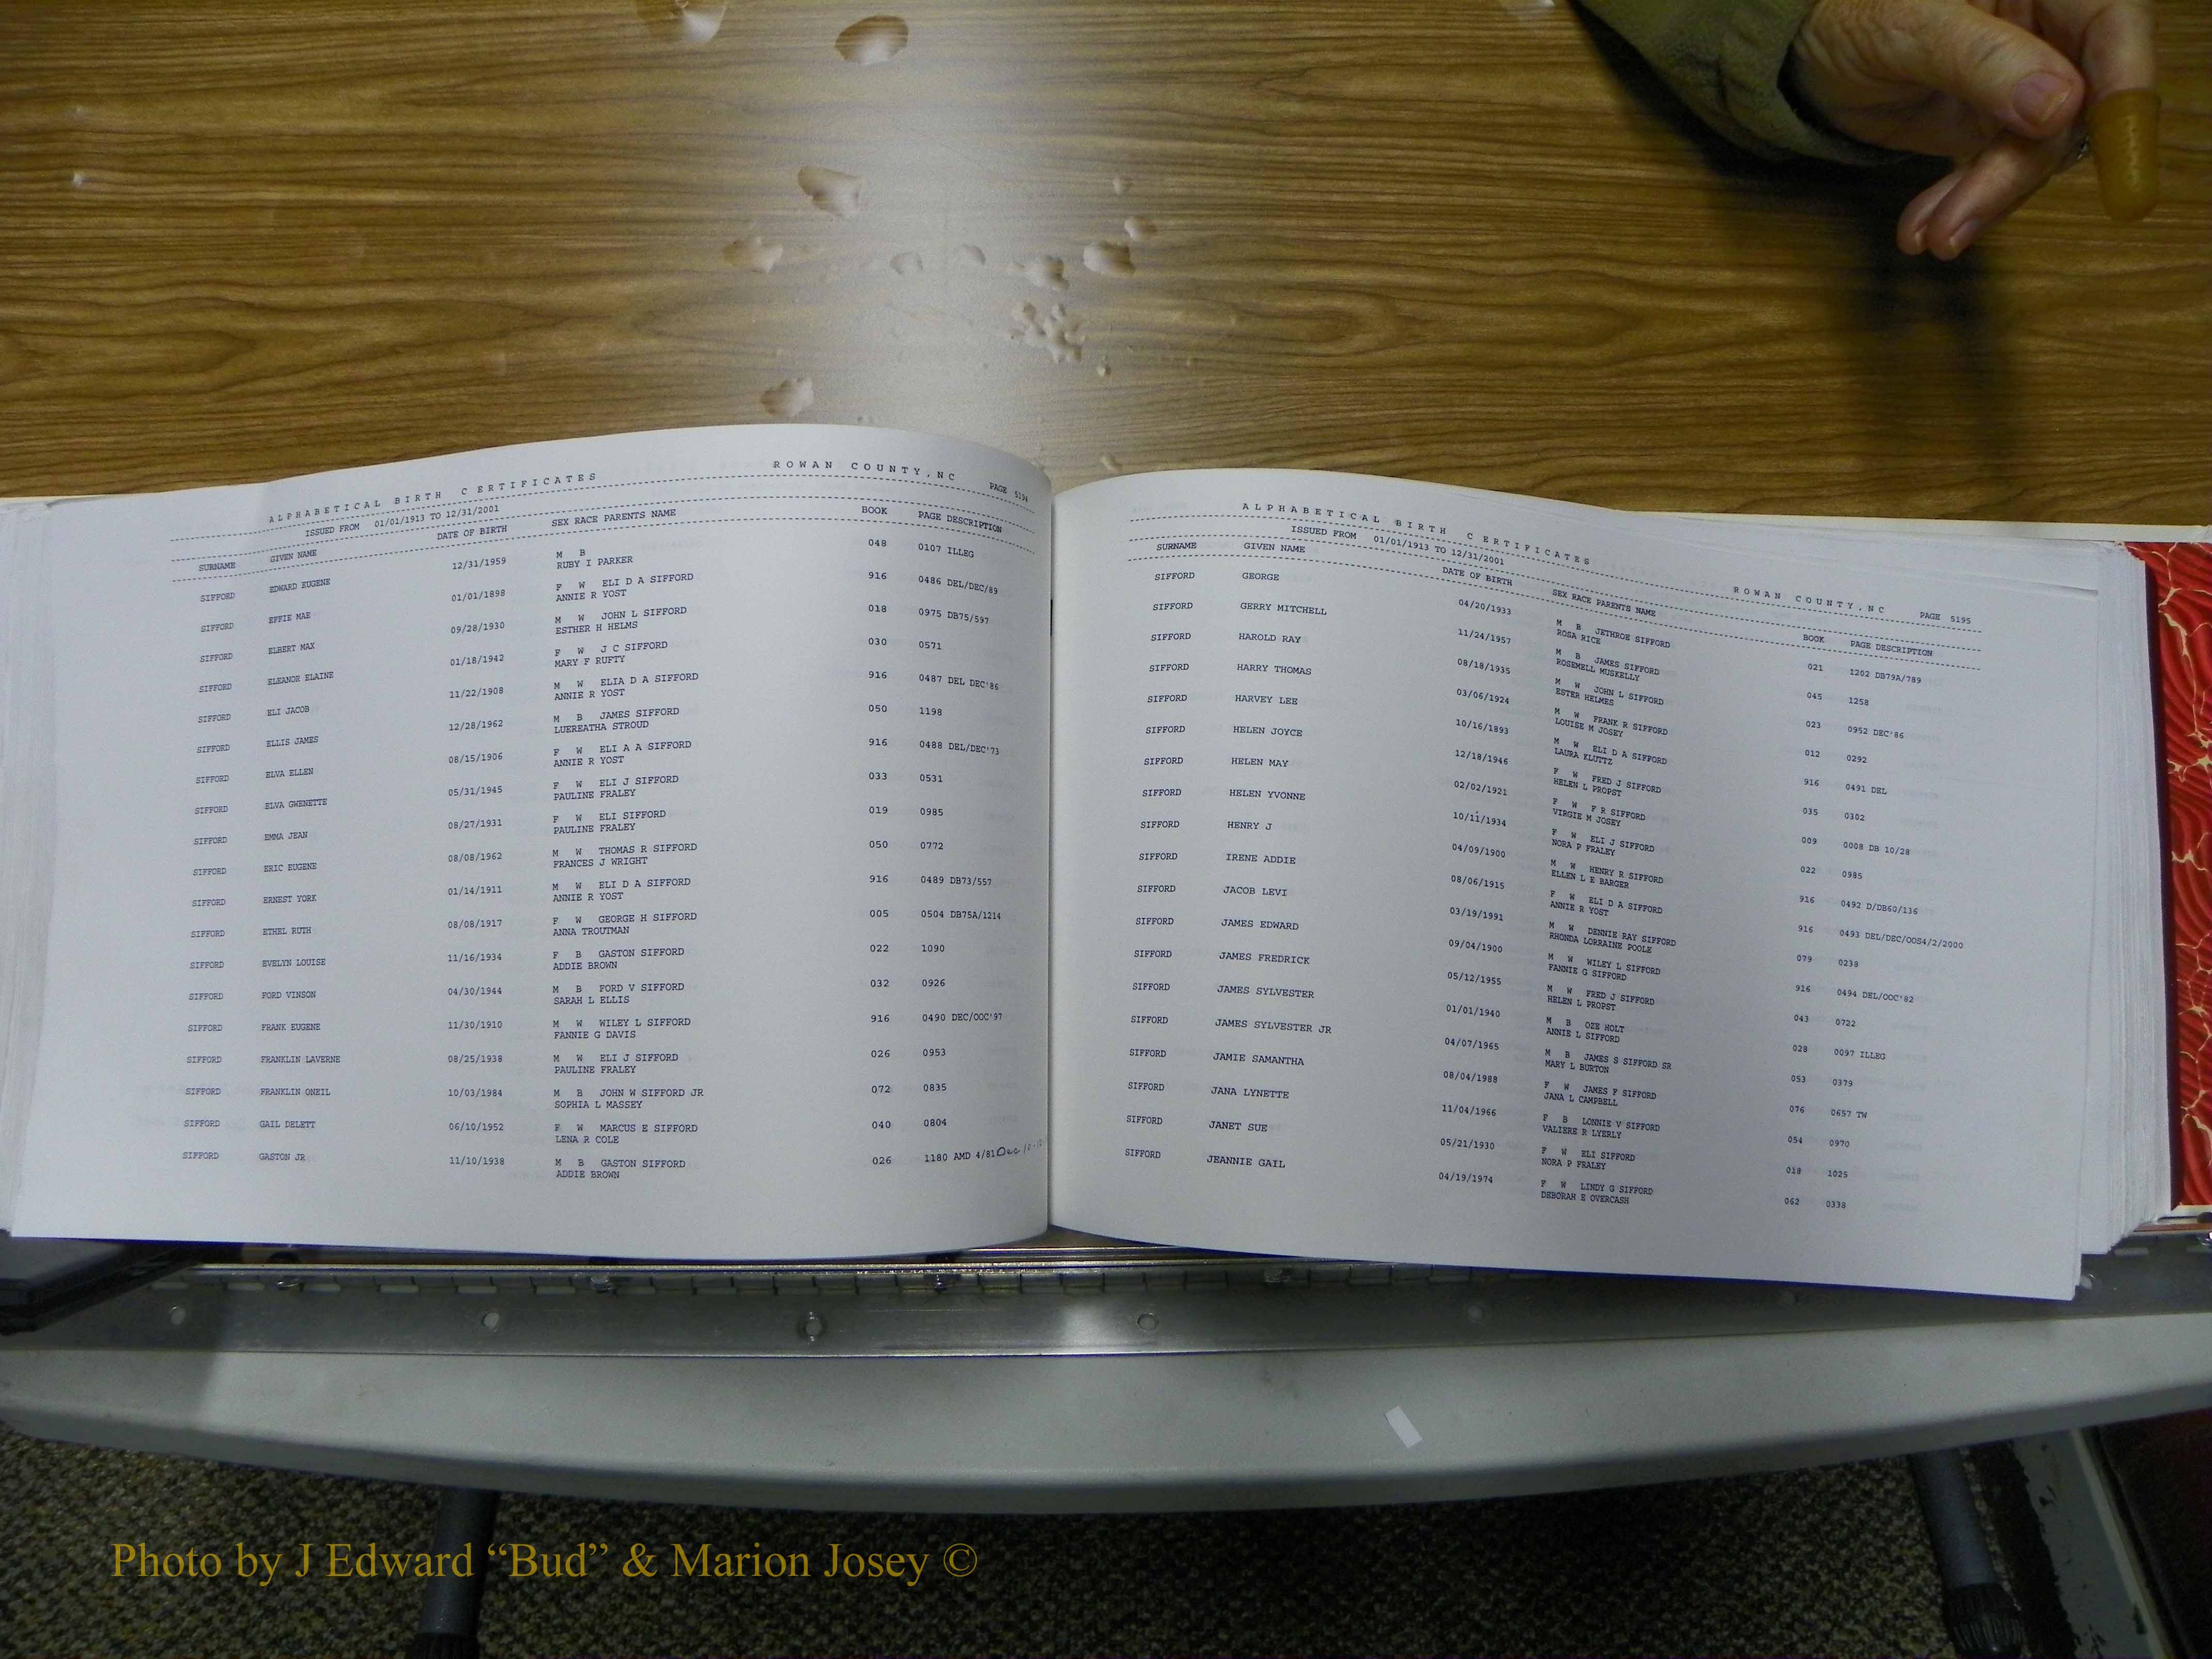 ALPHABETICAL BIRTH CERTIFICATES ROWAN COUNTY,NC PAGE 5194
ISSUED FROM 01/01/1913 TO 12/31/2001
SURNAME GIVEN NAME DATE OF BIRTH SEX RACE PARENTS NAME BOOK PAGE DESCRIPTION
SIFFORD EDWARD EUGENE 12/31/1959 M B 048 0107 ILLEG
RUBY I PARKER
SIFFORD EFFIE MAE 01/01/1898 F W ELI D A SIFFORD 916 0486 DEL/DEC/89
ANNIE R YOST
SIFFORD ELBERT MAX 09/28/1930 M W JOHN L SIFFORD 018 0975 DB75/597
ESTHER H HELMS
SIFFORD ELEANOR ELAINE 01/18/1942 F W J C SIFFORD 030 0571
MARY F RUFTY
SIFFORD ELI JACOB 11/22/1908 M W ELIA D A SIFFORD 916 0487 DEL DEC'86
ANNIE R YOST
SIFFORD ELLIS JAMES 12/28/1962 M B JAMES SIFFORD 050 1198
LUEREATHA STROUD
SIFFORD ELVA ELLEN 08/15/1906 F W ELI A A SIFFORD 916 0488 DEL/DEC'73
ANNIE R YOST
SIFFORD ELVA GWENETTE 05/31/1945 F W ELI J SIFFORD 033 0531
PAULINE FRALEY
SIFFORD EMMA JEAN 08/27/1931 F W ELI SIFFORD 019 0985
PAULINE FRALEY
SIFFORD ERIC EUGENE 08/08/1962 M W THOMAS R SIFFORD 050 0772
FRANCES J WRIGHT
SIFFORD ERNEST YORK 01/14/1911 M W ELI D A SIFFORD 916 0489 DB73/557
ANNIE R YOST
SIFFORD ETHEL RUTH 08/08/1917 F W GEORGE H SIFFORD 005 0504 DB75A/1214
ANNA TROUTMAN
SIFFORD EVELYN LOUISE 11/16/1934 F B GASTON SIFFORD 022 1090
ADDIE BROWN
SIFFORD FORD VINSON 04/30/1944 M B FORD V SIFFORD 032 0926
SARAH L ELLIS
SIFFORD FRANK EUGENE 11/30/1910 M W WILEY L SIFFORD 916 0490 DEC/OOC'97
FANNIE G DAVIS
SIFFORD FRANKLIN LAVERNE 08/25/1938 M W ELI J SIFFORD 026 0953
PAULINE FRALEY
SIFFORD FRANKLIN ONEIL 10/03/1984 M B JOHN W SIFFORD JR 072 0835
SOPHIA L MASSEY
SIFFORD GAIL DELETT 06/10/1952 F W MARCUS E SIFFORD 040 0804
LENA R COLE
SIFFORD GASTON JR 11/10/1938 M B GASTON SIFFORD 026 1180 AMD 4/81 Dec
ADDIE BROWN
ALPHABETICAL BIRTH CERTIFICATES ROWAN COUNTY,NC PAGE 5195
ISSUED FROM 01/01/1913 TO 12/31/2001
SURNAME GIVEN NAME DATE OF BIRTH SEX RACE PARENTS NAME BOOK PAGE DESCRIPTION
SIFFORD GEORGE 04/20/1933 M B JETHROE SIFFORD 021 1202 DB79A/789
ROSA RICE
SIFFORD GERRY MITCHELL 11/24/1957 M B JAMES SIFFORD 045 1258
ROSEMELL MUSKELLY
SIFFORD HAROLD RAY 08/18/1935 M W JOHN L SIFFORD 023 0952 DEC'86
ESTER HELMES
SIFFORD HARRY THOMAS 03/06/1924 M W FRANK R SIFFORD 012 0292
LOUISE M JOSEY
SIFFORD HARVEY LEE 10/16/1893 M W ELI D A SIFFORD 916 0491 DEL
LAURA KLUTTZ
SIFFORD HELEN JOYCE 12/18/1946 F W FRED J SIFFORD 035 0302
HELEN L PROPST
SIFFORD HELEN MAY 02/02/1921 F W F R SIFFORD 009 0008 DB 10/28
VIRGIE M JOSEY
SIFFORD HELEN YVONNE 10/11/1934 F W ELI J SIFFORD 022 0985
NORA P FRALEY
SIFFORD HENRY J 04/09/1900 M W HENRY R SIFFORD 916 0492 D/DB60/136
ELLEN L E BARGER
SIFFORD IRENE ADDIE 08/06/1915 F W ELI D A SIFFORD 916 0493 DEL/DEC/OOS4/2/2000
ANNIE R YOST
SIFFORD JACOB LEVI 03/19/1991 M W DENNIE RAY SIFFORD 079 0238
RHONDA LORRAINE POOLE
SIFFORD JAMES EDWARD 09/04/1900 M W WILEY L SIFFORD 916 0494 DEL/OOC'82
FANNIE G SIFFORD
SIFFORD JAMES FREDRICK 05/12/1955 M W FRED J SIFFORD 043 0722
HELEN L PROPST
SIFFORD JAMES SYLVESTER 01/01/1940 M B OZE HOLT 028 0097 ILLEG
ANNIE L SIFFORD
SIFFORD JAMES SYLVESTER JR 04/07/1965 M B JAMES S SIFFORD SR 053 0379
MARY L BURTON
SIFFORD JAMIE SAMANTHA 08/04/1988 F W JAMES F SIFFORD 076 0657 TW
JANA L CAMPBELL
SIFFORD JANA LYNETTE 11/04/1966 F B LONNIE V SIFFORD 054 0970
VALIERE R LYERLY
SIFFORD JANET SUE 05/21/1930 F W ELI SIFFORD 018 1025
NORA P FRALEY
SIFFORD JEANNIE GAIL 04/19/1974 F W LINDY G SIFFORD 062 0338
DEBORAH E OVERCASH
Photo by J Edward “Bud” & Marion Josey ©